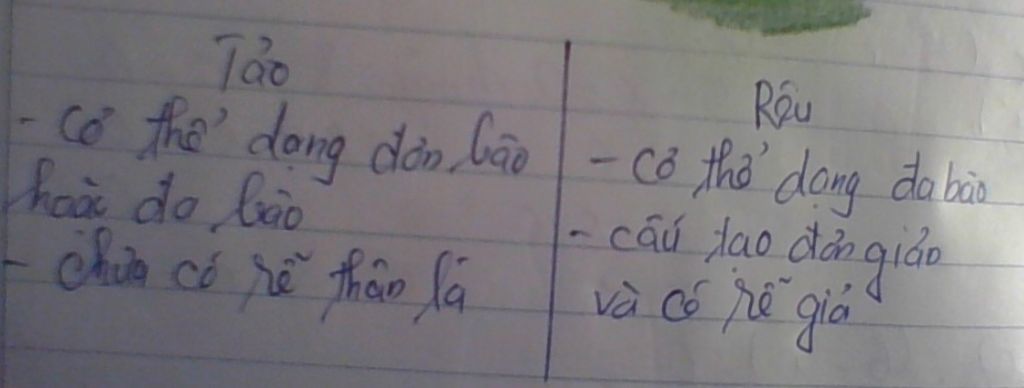 Tảo
- Cơ thể dạng đơn bào
hoặc đa bào
- Chưa có rễ thân lá
Rêu
- Cơ thể dạng đa bào
- cấu tạo đơn giản
và có rễ giả